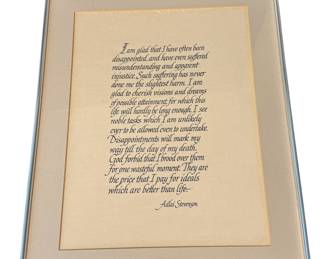 I am glad that I have often been
disappointed, and have even suffered
misunderstanding and apparent
injustice. Such suffering has never
done me the slightest harm. I am
glad to cherish visions and dreams
of possible attainment for which this
life will hardly be long enough. I see
noble tasks which I am unlikely
ever to be allowed even to undertake.
Disappointments will mark my
way till the day of my death.
God forbid that I brood over them
for one wasteful moment. They are
the price that I pay for ideals
which are better than life.
Adlai Stevenson